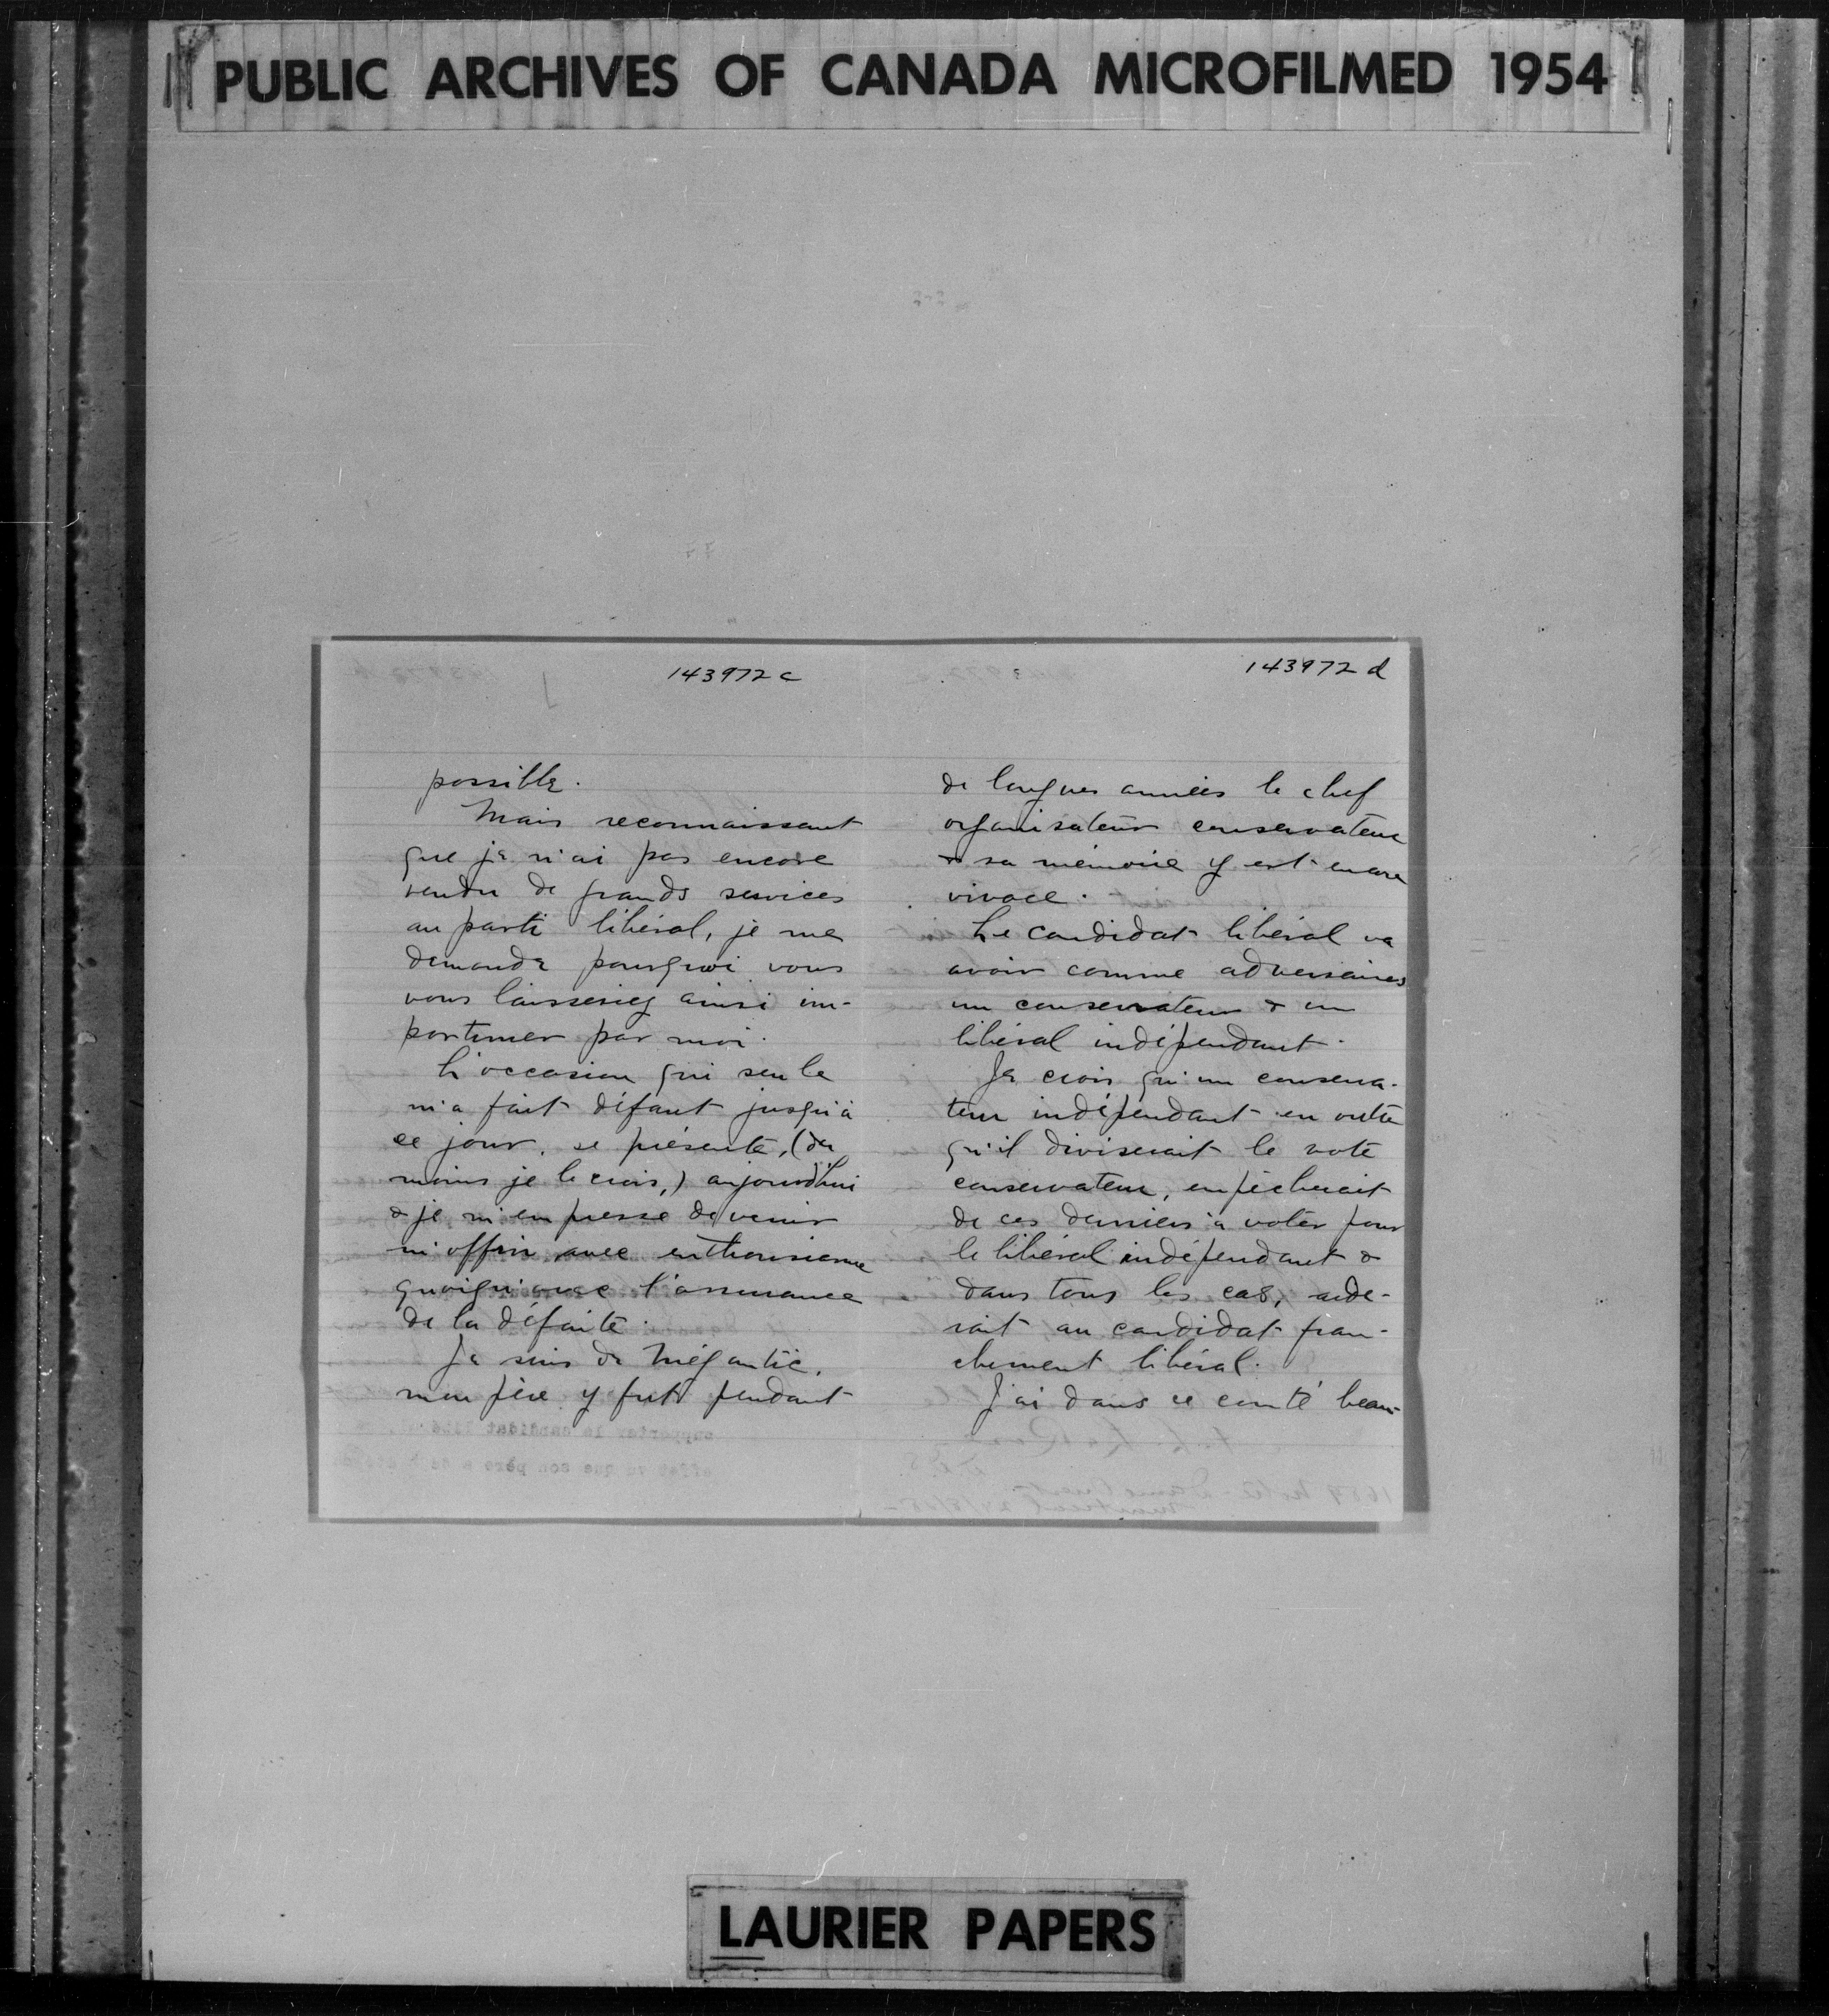 PUBLIC ARCHIVES OF CANADA MICROFILMED 1954
143972 c
possible.
Mais reconnaissant
que je n'ai pas encore
rendu de grands services
au parti libéral, je me
demande pourquoi vous
vous laisseriez ainsi im-
portuner par moi.
L'occasion qui seule
m'a fait défaut jusqu'à
ce jour, se présente, (du
moins je le crois,) aujourd'hui
& je m'empresse de venir
m'offrir avec enthousiasme
quoiqu'avec l'assurance
de la défaite.
Je suis de Mégantic,
mon père y fut pendant
143972 d
de longues années le chef
organisateur conservateur
& sa mémoire y est encore
vivace.
Le candidat libéral va
avoir comme adversaires
un conservateur & un
libéral indépendant.
Je crois qu'un conserva-
teur indépendant en outre
qu'il diviserait le vote
conservateur, empêcherait
de ces derniers à voter pour
le libéral indépendant &
dans tous les cas, aide-
rait au candidat fran-
chement libéral.
J'ai dans ce comté beau-
LAURIER PAPERS